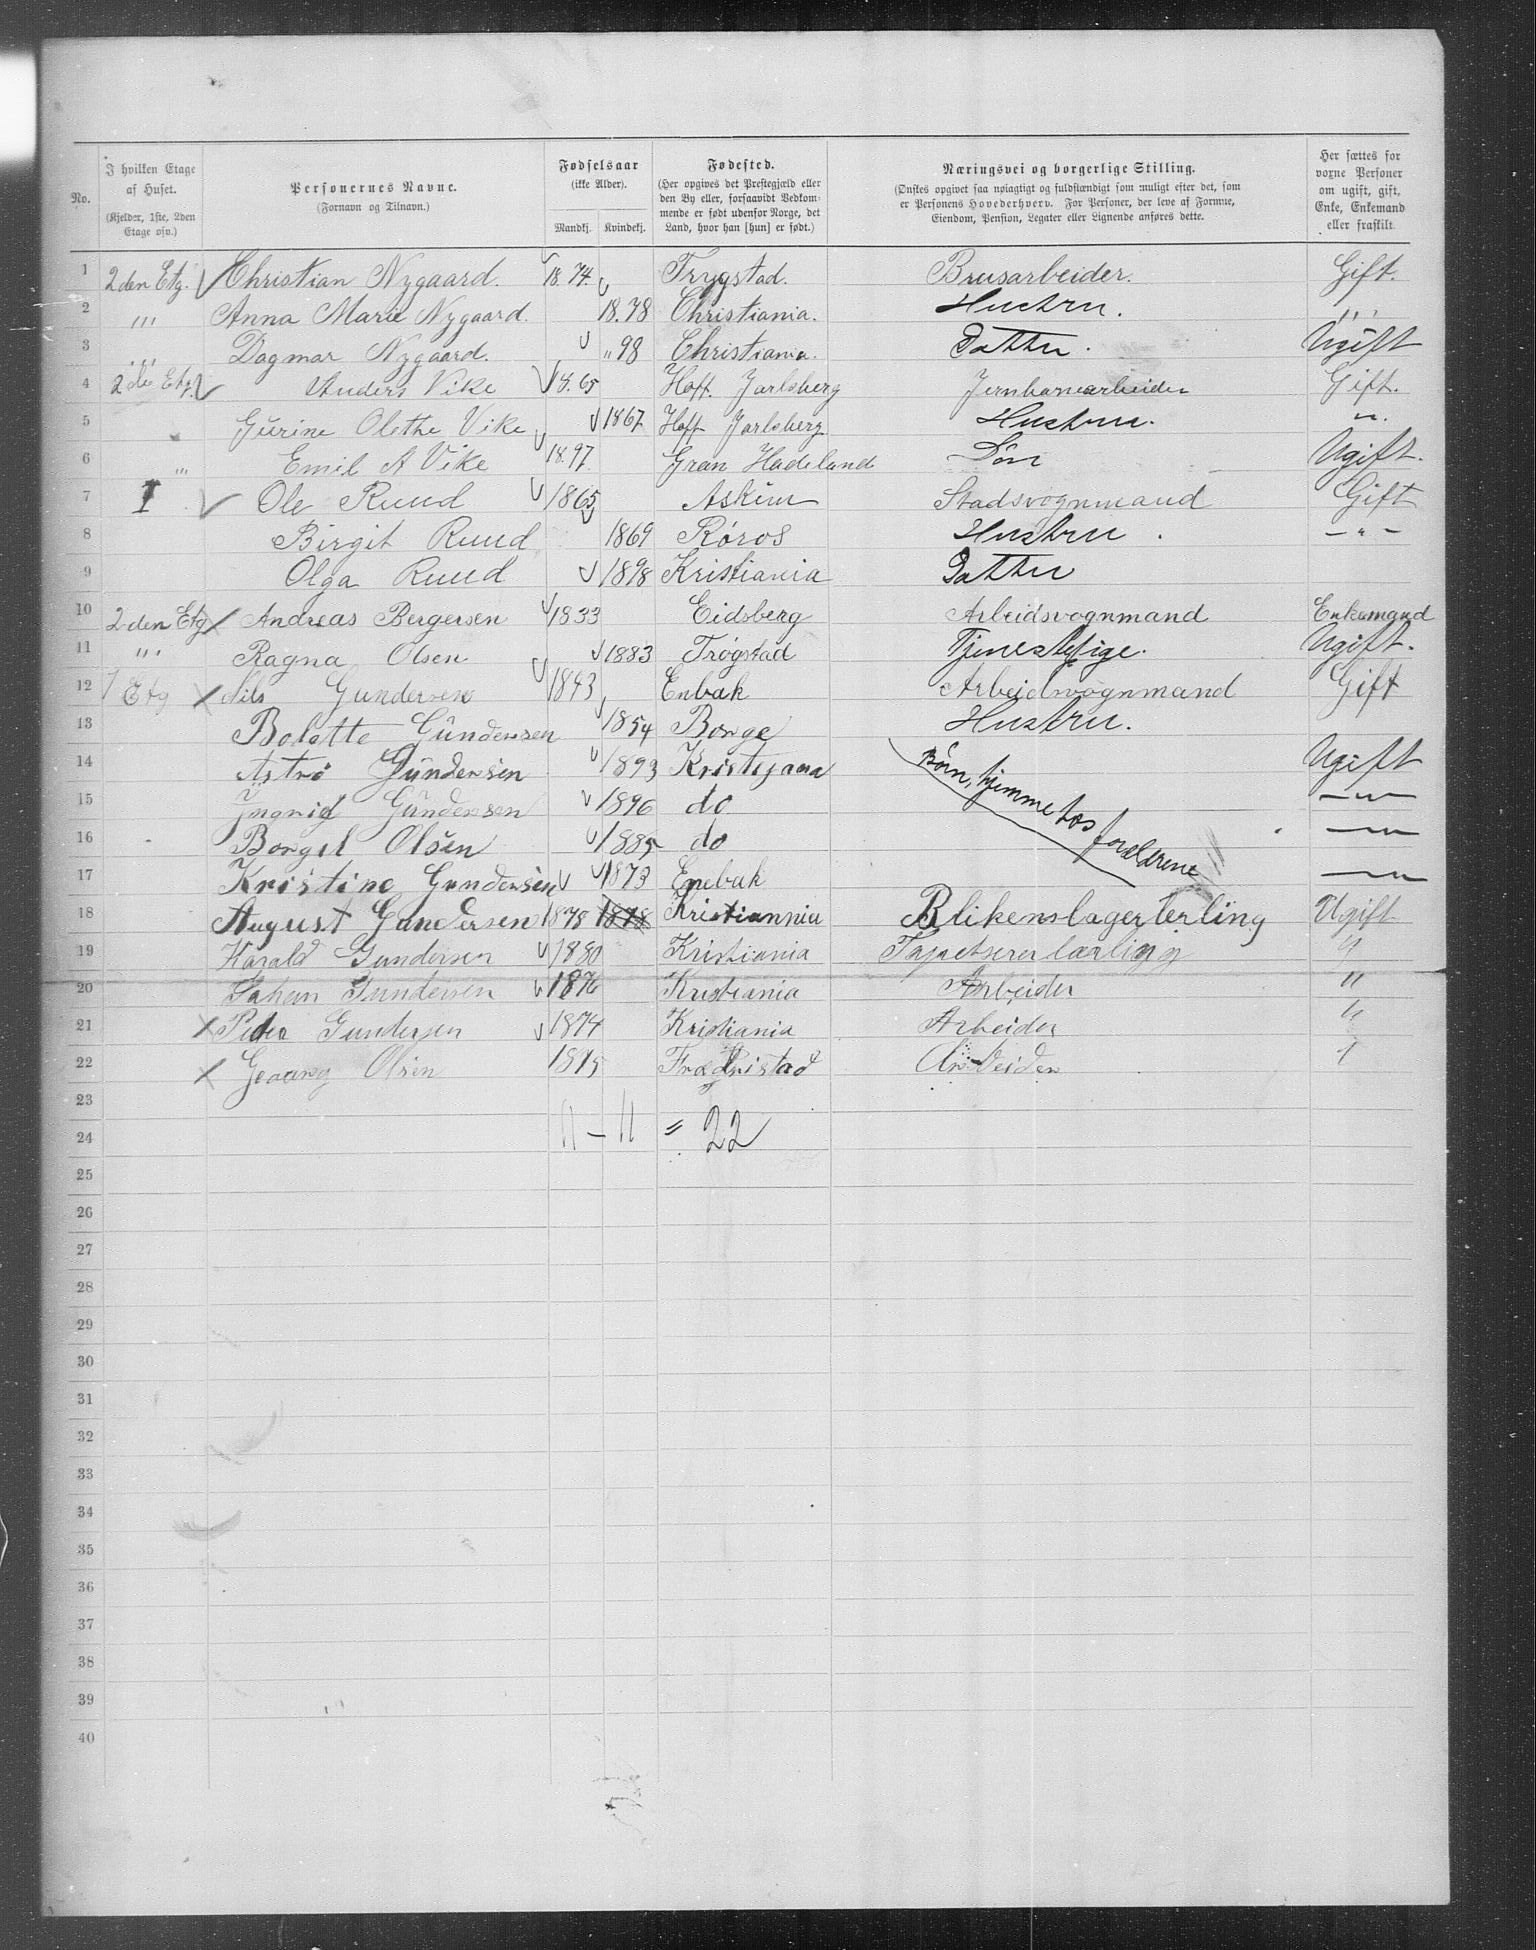 No. I hvilken Etage af Huset. (Kjelder, 1ste, 2den Etage osv.) Personernes Navne. (Fornavn og Tilnavn.) Fødselsaar (ikke Alder). Mandkj. Kvindekj. Fødested. (Her opgives det Prestegjæld eller den By eller, forsaavidt Vedkommende er født udenfor Norge, det Land, hvor han [hun] er født.) Næringsvei og borgerlige Stilling. (Ønskes opgivet saa nøiagtigt og fuldstændigt som muligt efter det, som er Personens Hovederhverv. For Personer, der leve af Formue, Eiendom, Pension, Legater eller Lignende anføres dette. Her sættes for voxne Personer om ugift, gift, Enke, Enkemand eller fraskilt.
1 2den Etg. Christian Nygaard. 18.74. Trygstad. Brusarbeider. Gift.
2 ,,, Anna Marie Nygaard. 18.78 Christiania. Hustru. ,,,
3 ,,, Dagmar Nygaard. " 98 Christiania. Datter. Ugift
4 2den Etg. Anders Vike 18.65 Hoff. Jarlsberg Jernbanearbeider Gift.
5 Gurine Olethe Vike 1867 Hoff Jarlsberg Hustru. "
6 ,,, Emil A Vike 18.97 Gran Hadeland Søn Ugift.
7 I Ole Ruud 1865 Askim Stadsvognmand Gift
8 Birgit Ruud 1869 Røros Hustru. - " -
9 Olga Ruud 1898 Kristiania Datter
10 2den Etg Andreas Bergersen 1833 Eidsberg Arbeidsvognmand Enkemand
11 ,,, Ragna Olsen 1883 Trøgstad Tjenestepige. Ugift.
12 1 Etg Nils Gundersen 1843 Enbak Arbeidsvognmand Gift
13 Bolette Gündersen 1854 Borge Hustru.
14 Astri Gündersen 1893 Kristijana Børn, hjemme hos forældrene Ugift
15 Yngrid Gündersen 1896 do — " —
16 Borgel Olsen 1885 do — " —
17 Kristine Gundersen 1873 Enebak — " —
18 August Gundersen 1878 1878 Kristiannia Blikenslagerlerling Ugift
19 Harald Gundersen 1880 Kristiania Tapetsererlærling "
20 Johan Gundersen 1876 Kristiania Arbeider "
21 Peder Gundersen 1874 Kristiania Arbeider "
22 Georg Olsen 1875 Fredristad Arbeider "
23
24 11 – 11 = 22
25
26
27
28
29
30
31
32
33
34
35
36
37
38
39
40